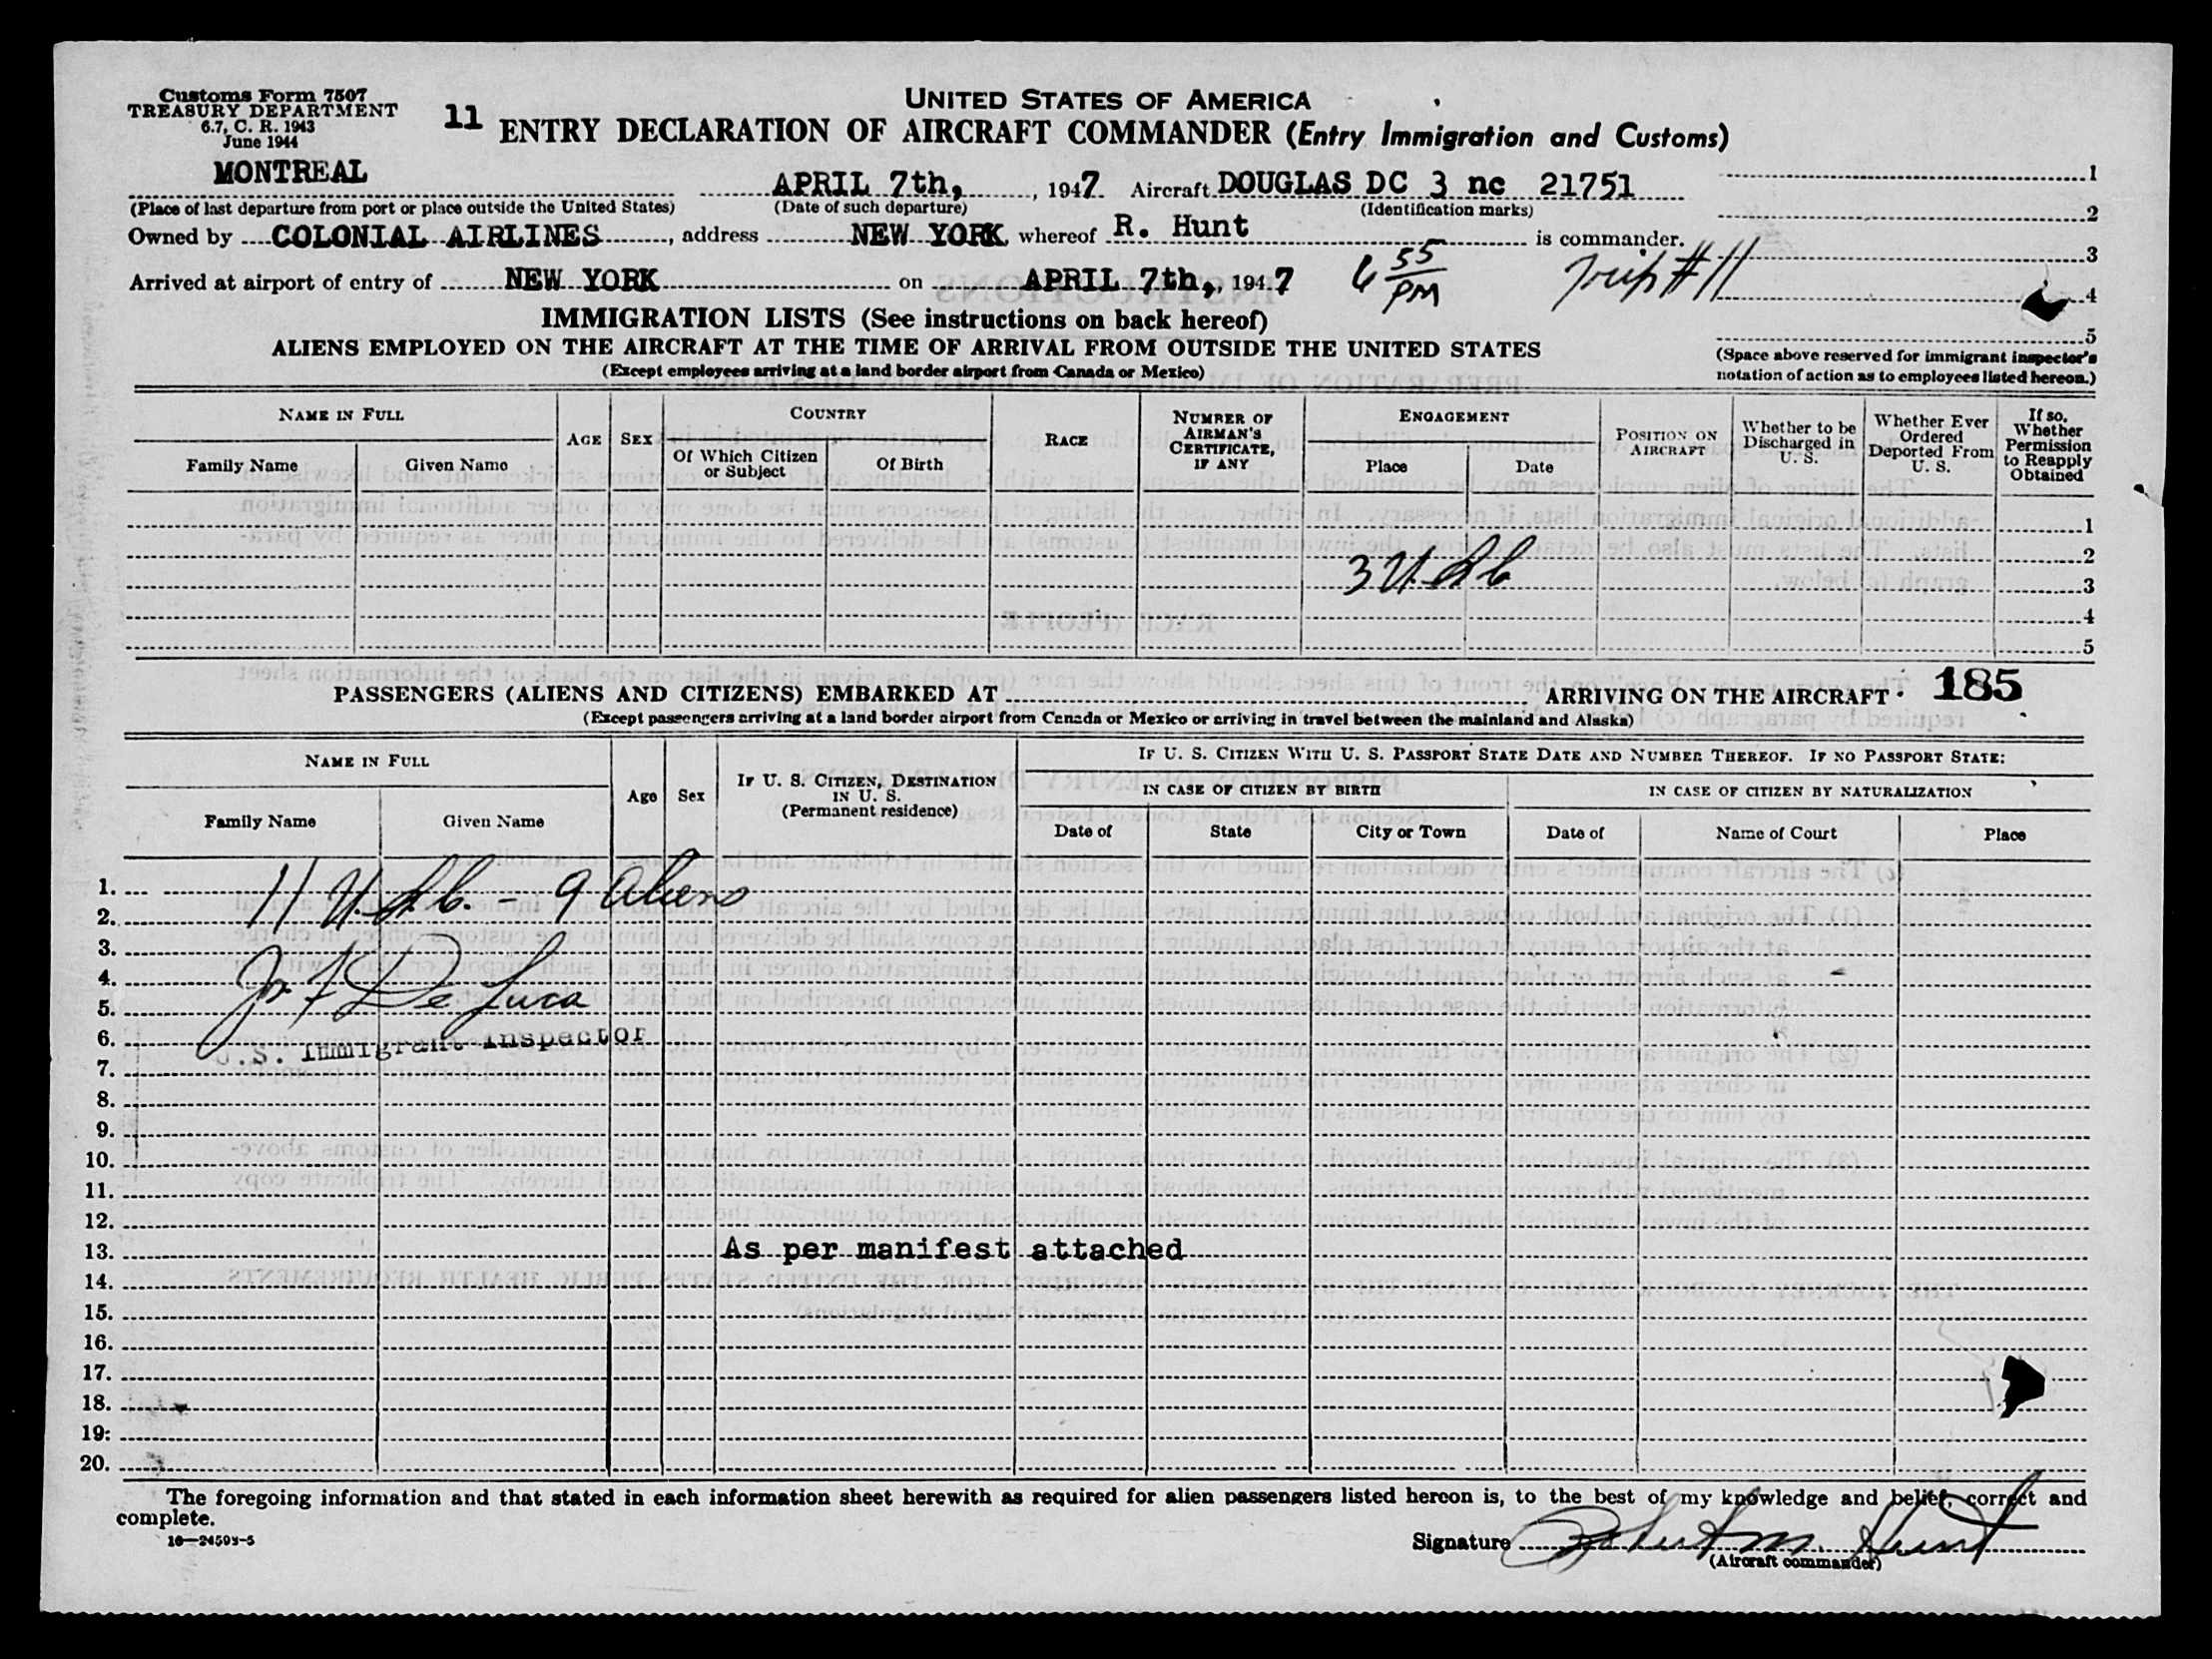 Customs Form 7507
TREASURY DEPARTMENT
6.7, C. R. 1943
June 1944
11
UNITED STATES OF AMERICA
ENTRY DECLARATION OF AIRCRAFT COMMANDER (Entry Immigration and Customs)
MONTREAL APRIL 7th, , 1947 Aircraft DOUGLAS DC 3 nc 21751 1
(Place of last departure from port or place outside the United States) (Date of such departure) (Identification marks) 2
Owned by COLONIAL AIRLINES, address NEW YORK, whereof R. Hunt is commander. 3
Arrived at airport of entry of NEW YORK on APRIL 7th, , 1947 6 55 PM trip #11 4
IMMIGRATION LISTS (See instructions on back hereof)
5
ALIENS EMPLOYED ON THE AIRCRAFT AT THE TIME OF ARRIVAL FROM OUTSIDE THE UNITED STATES
(Except employees arriving at a land border airport from Canada or Mexico)
(Space above reserved for immigrant inspector's
notation of action as to employees listed hereon.)
NAME IN FULL
Family Name Given Name
AGE SEX
COUNTRY
Of Which Citizen or Subject Of Birth
RACE
NUMBER OF AIRMAN'S CERTIFICATE, IF ANY
ENGAGEMENT
Place Date
POSITION ON AIRCRAFT
Whether to be Discharged in U. S.
Whether Ever Ordered Deported From U. S.
If so, Whether Permission to Reapply Obtained
1
2
3 U.S.C. 3
4
5
PASSENGERS (ALIENS AND CITIZENS) EMBARKED AT ARRIVING ON THE AIRCRAFT 185
(Except passengers arriving at a land border airport from Canada or Mexico or arriving in travel between the mainland and Alaska)
NAME IN FULL
Family Name Given Name
Age Sex
IF U. S. CITIZEN, DESTINATION IN U. S.
(Permanent residence)
IF U. S. CITIZEN WITH U. S. PASSPORT STATE DATE AND NUMBER THEREOF. IF NO PASSPORT STATE:
IN CASE OF CITIZEN BY BIRTH IN CASE OF CITIZEN BY NATURALIZATION
Date of State City or Town Date of Name of Court Place
1. 11 U.S.C. - 9 Aliens
2.
3.
4. De Luca
5.
6. U.S. Immigrant Inspector
7.
8.
9.
10.
11.
12.
13. As per manifest attached
14.
15.
16.
17.
18.
19.
20.
The foregoing information and that stated in each information sheet herewith as required for alien passengers listed hereon is, to the best of my knowledge and belief, correct and
complete.
Signature Robert M. Hunt
(Aircraft commander)